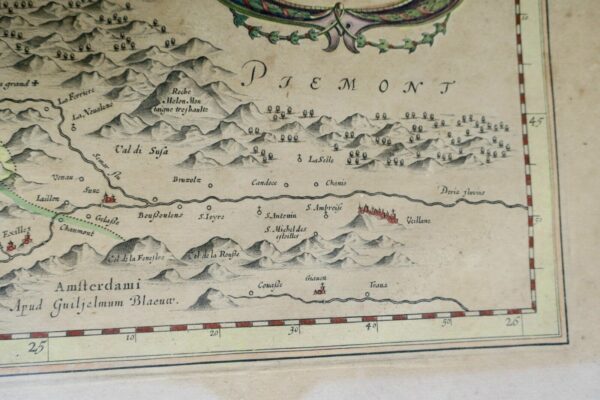 PIEMONT
grand
La Ferriere
La Novalese
Roche
Melon Mon
taigne treshaulte
45
Val di Susa
La Selle
Venau
Bruzolz
Candoce
Chonis
Doria fluvius
Laillon
Suse
Gelasse
Boussoulens
S. Joyre
S. Antonin
S. Ambroise
Veillane
50
Exilles
Chaumont
S. Michel des
estoilles
Col de la Fenestre
Col de la Rousse
Amsterdami
Apud Guiljelmum Blaeuw.
Couasse
Giaven
Trana
25
10
20
30
40
50
26